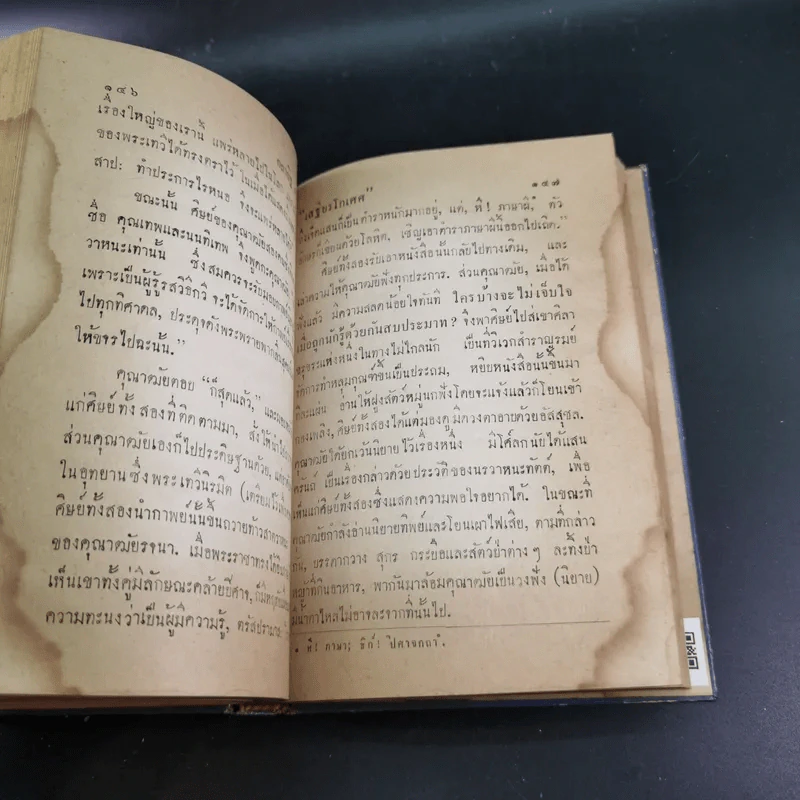 ๑๔๖
เรื่องใหญ่ของเรานี้ แพร่หลายไปใน
ของพระเทวีได้ทรงตราไว้ ในเมื่อ
สาป: ทำประการไรหนอ จึงจะแพร่หลาย
ขณะนั้น ศิษย์ของคุณาฒัยสอง
ชื่อ คุณเทพและนนทิเทพ จึงพูดกะ
วาหนะเท่านั้น ซึ่งสมควรจะรับมอบ
เพราะเป็นผู้รู้รสวิธีกวี จะได้จัดการให้
ไปทุกทิศาดล, ประดุจดังพระพายพากลิ่น
ให้ขจรไปฉะนั้น."
คุณาฒัยตอบ "ก็สุดแล้ว," และ
แก่ศิษย์ทั้งสองที่ติดตามมา, สั่งให้นำไป
ส่วนคุณาฒัยเองก็ไปประดิษฐานด้วย,
ในอุทยานซึ่งพระเทวินิรมิต (เตรียมไว้
ศิษย์ทั้งสองนำกาพย์นั้นขึ้นถวายท้าว
ของคุณาฒัยรจนา. เมื่อพระราชาทรง
เห็นเขาทั้งคู่มีลักษณะคล้ายปีศาจ,
ความทะนงว่าเป็นผู้มีความรู้, ตรัสปรามาส
๑๔๗
"เสฐียรโกเศศ"
เจ็ดแสนก็เป็นตำราหนักมากอยู่, แต่, หึ! ภาษาผี, ตัว
ก็เขียนด้วยโลหิต, เชิญเอาตำราภาษาผีนี้ออกไปเถิด."
ศิษย์ทั้งสองรับเอาหนังสือนั้นกลับไปทางเดิม, และ
เล่าความให้คุณาฒัยฟังทุกประการ. ส่วนคุณาฒัย, เมื่อได้
ฟังแล้ว มีความสลดน้อยใจทันที ใครบ้างจะไม่เจ็บใจ
เมื่อถูกนักรู้ด้วยกันสบประมาท? จึงพาศิษย์ไปสู่เขาศิลา
แห่งหนึ่งในทางไม่ไกลนัก เป็นที่วิเวกสำราญรมย์
จัดการทำหลุมกูณฑ์ขึ้นเป็นประถม, หยิบหนังสือนั้นขึ้นมา
ทีละแผ่น อ่านให้ฝูงสัตว์หมู่นกฟังโดยจะแจ้งแล้วก็โยนเข้า
กองเพลิง, ศิษย์ทั้งสองได้แต่มองดูมีดวงตาอาบด้วยอัสสุชล.
คุณาฒัยได้ยกเว้นนิยายไว้เรื่องหนึ่ง มีโศลกนับได้แสน
เป็นเรื่องกล่าวด้วยประวัติของนรวาหะทัตต์, เพื่อ
เห็นแก่ศิษย์ทั้งสองซึ่งแสดงความพอใจอยากได้. ในขณะที่
คุณาฒัยกำลังอ่านนิยายทิพย์และโยนเผาไฟเสีย, ตามที่กล่าว
บรรดากวาง สุกร กระบือและสัตว์ป่าต่าง ๆ ละทิ้งป่า
หญ้าที่กินอาหาร, พากันมาล้อมคุณาฒัยเป็นวงฟัง (นิยาย)
มีน้ำตาไหลไม่อาจละจากที่นั้นไป.
หึ! ภาษา; ธิก์! ปิศาจกถา.